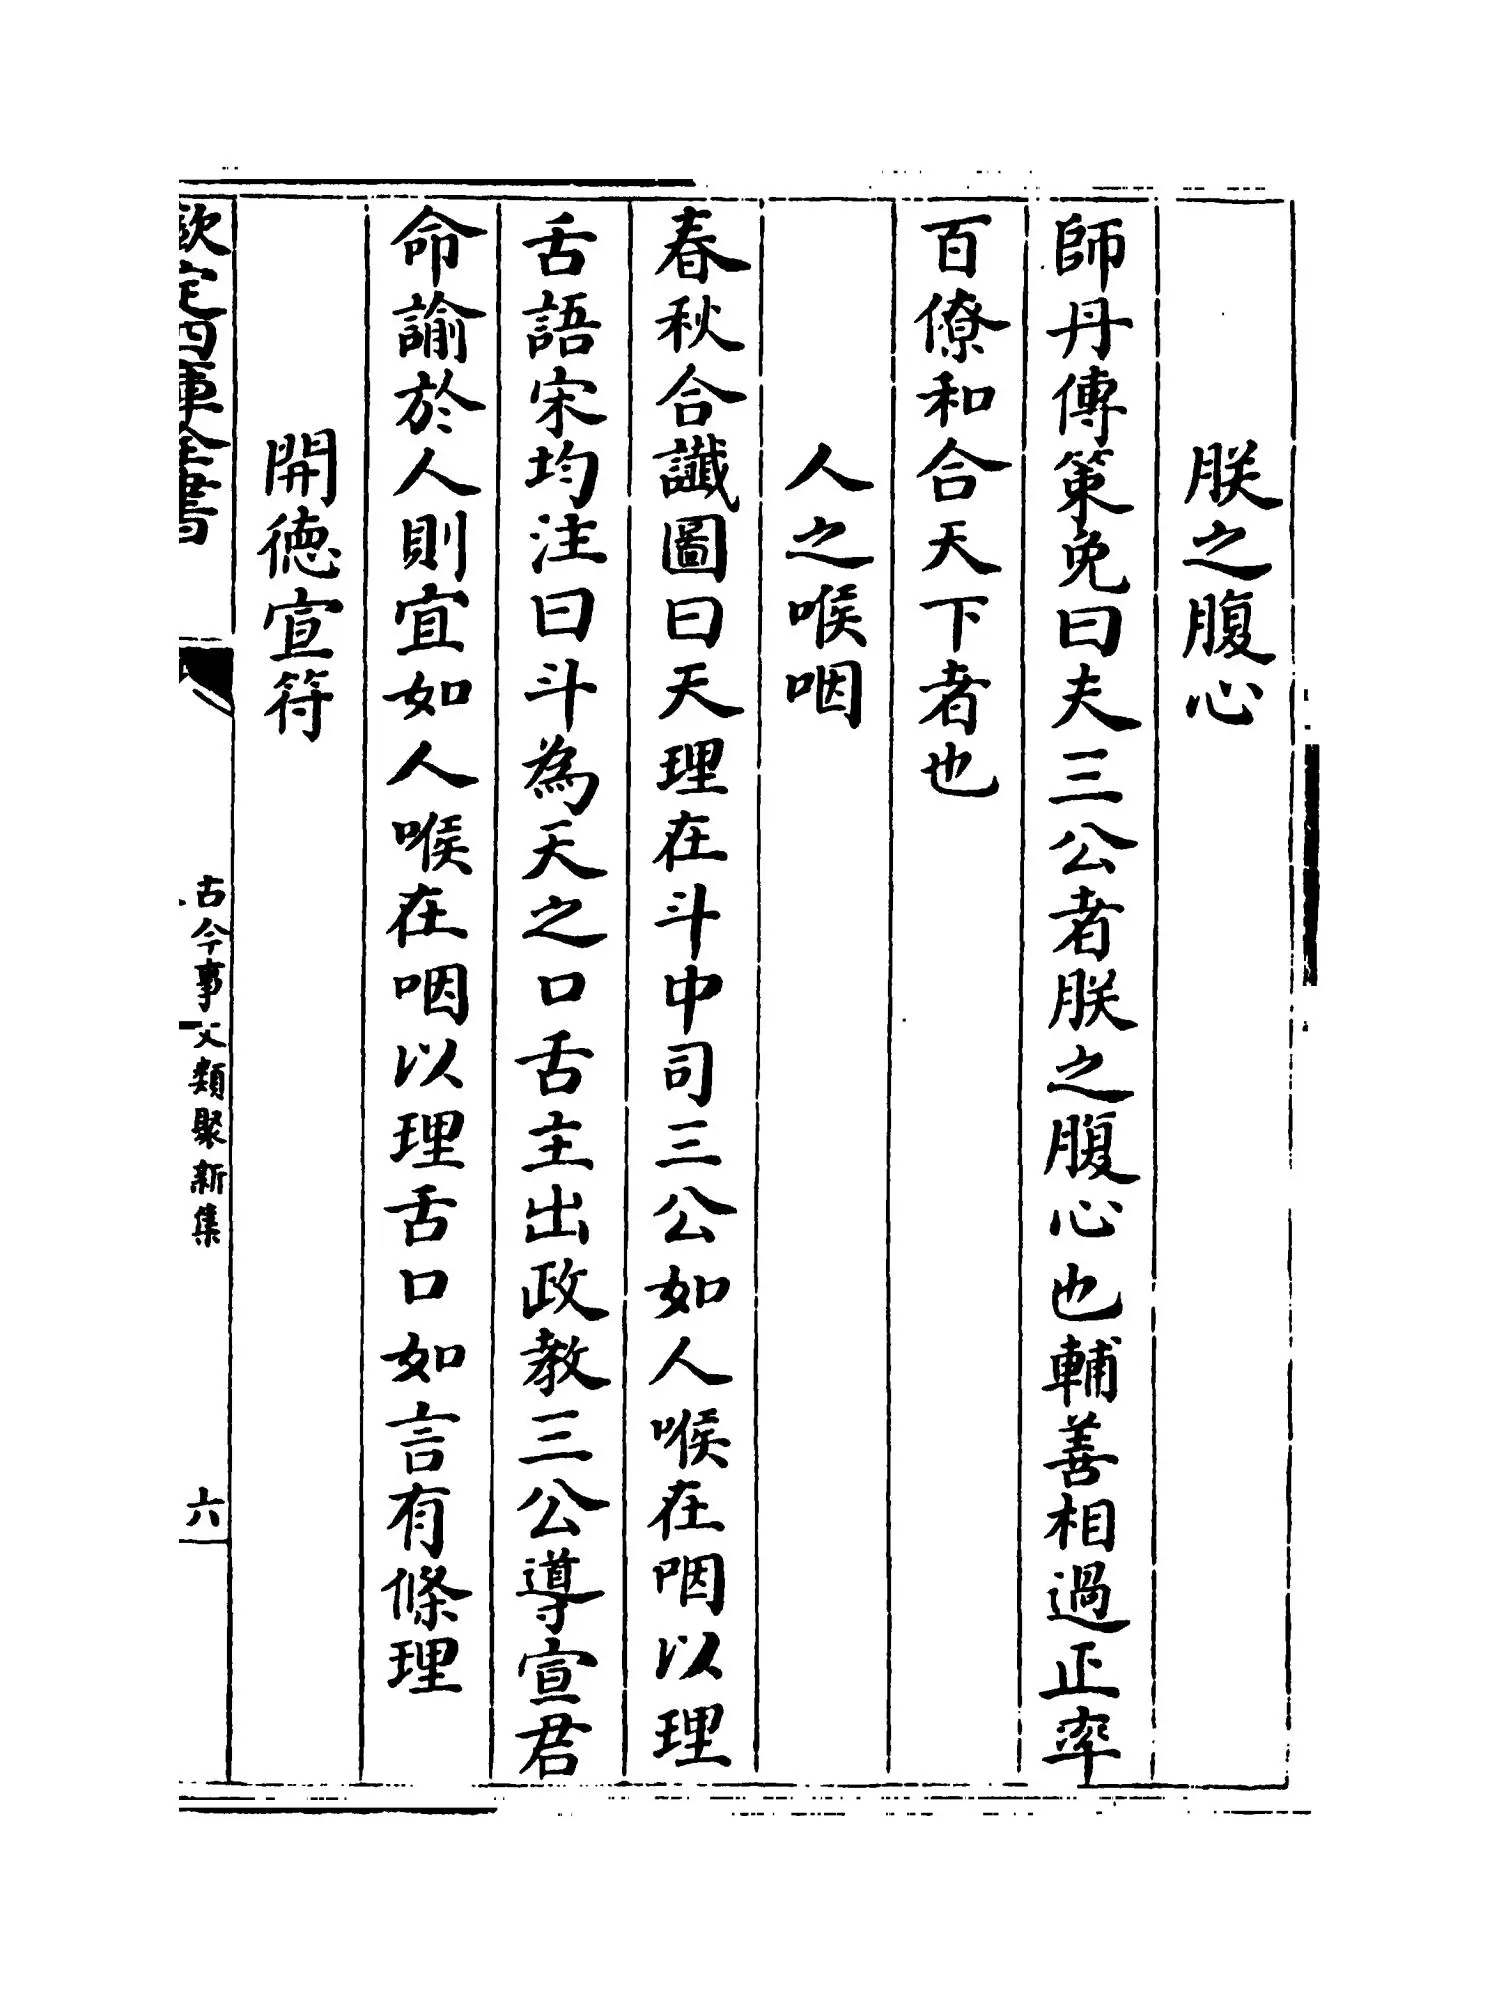 朕之腹心
師丹傳策免曰夫三公者朕之腹心也輔善相過正率
百僚和合天下者也
人之喉咽
春秋合讖圖曰天理在斗中司三公如人喉在咽以理
舌語宋均注曰斗為天之口舌主出政教三公導宣君
命諭於人則宜如人喉在咽以理舌口如言有條理
開德宣符
欽定四庫全書
古今事文類聚新集
六